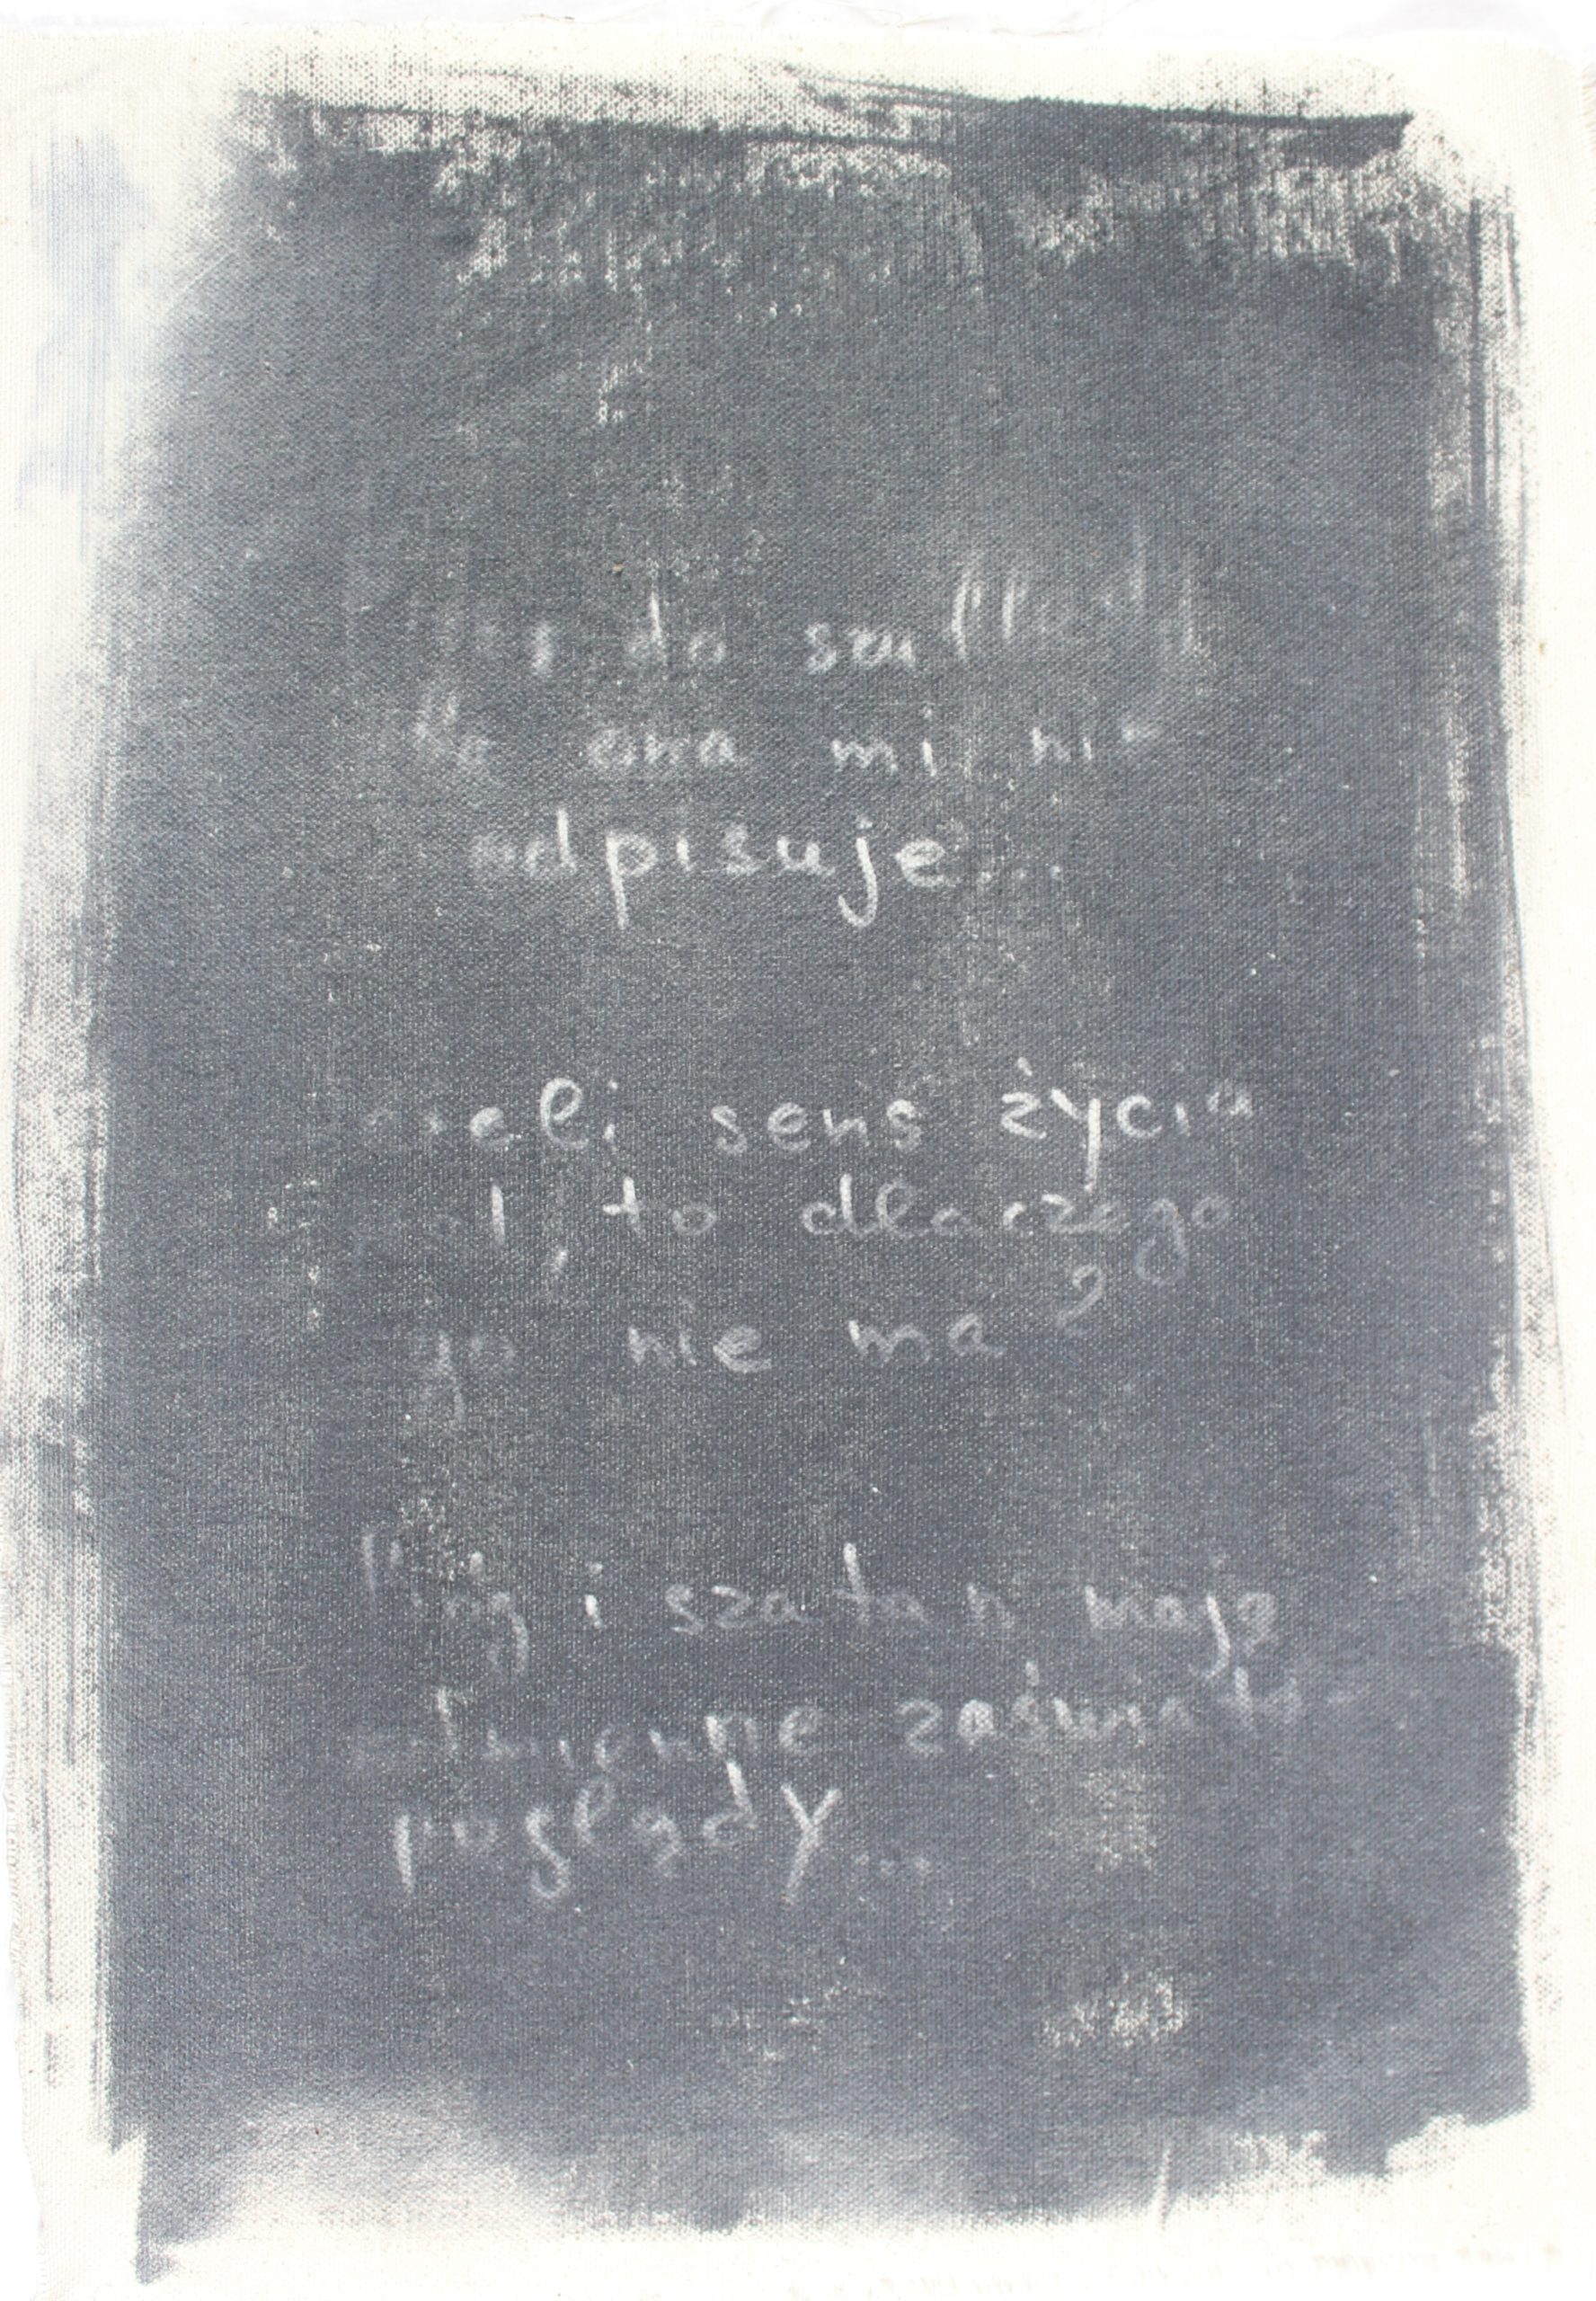 do szuflady
ona mi nie
odpisuje...
sens życia
to dlaczego
go nie ma?
i szatan mają
odmienne zaświaty
poglądy...